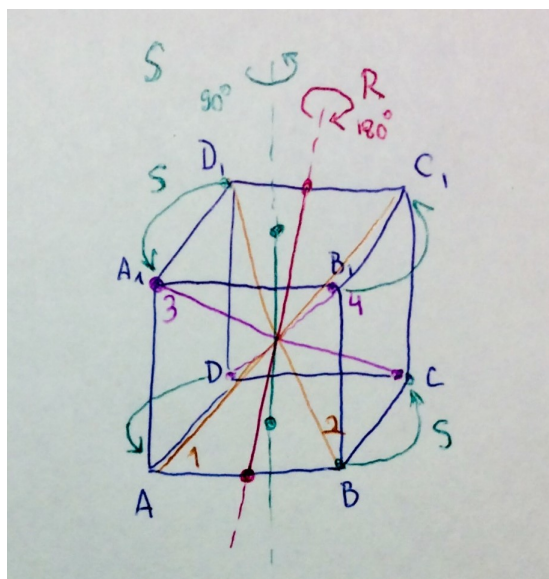 S
90°
R
180°
D₁
C₁
S
A₁
B₁
3
4
D
C
1
2
S
A
B